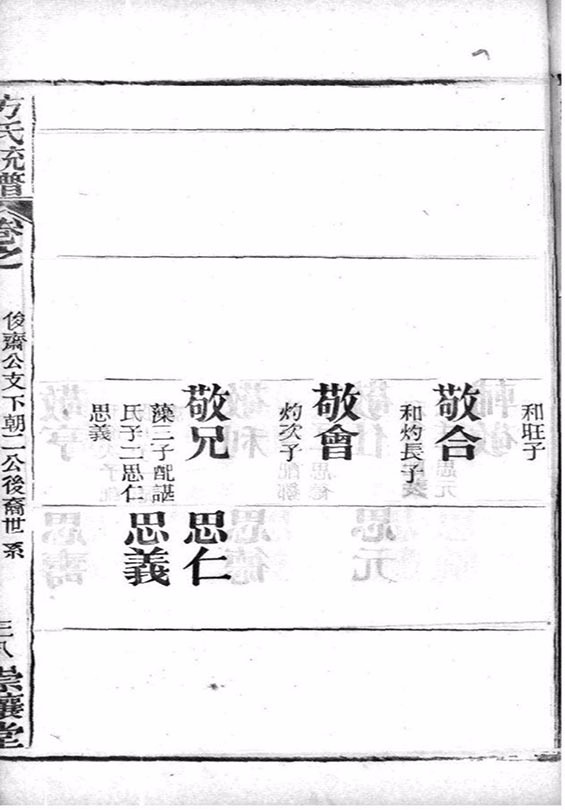 和旺子
敬合
和灼長子
敬會
灼次子
敬兄
藻二子配諶
氏子二思仁
思義
思仁
思義
方氏統譜
卷之
俊齋公支下朝二公後裔世系
三八
崇讓堂